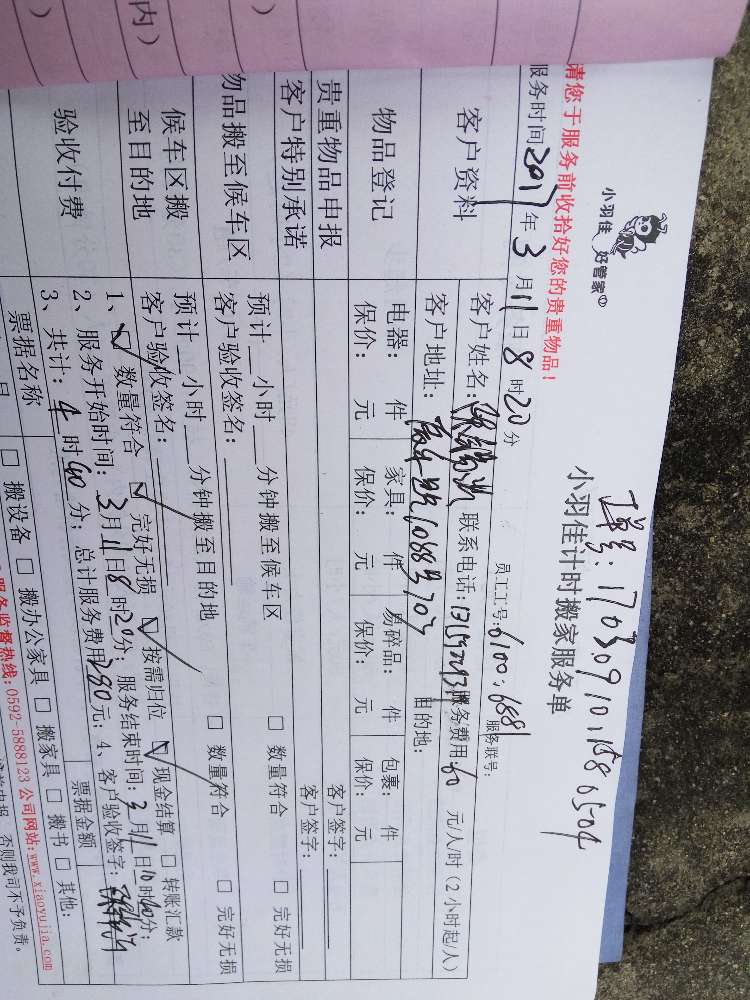 内)
)
小羽佳 好管家
单号: 170309101158 0504
小羽佳计时搬家服务单
请您于服务前收拾好您的贵重物品!
员工工号: 0100, 6881 服务联号:
服务时间 2017 年 3 月 11 日 8 时 20 分
客户资料
客户姓名: 联系电话: 服务费用 60 元/人/时 (2小时起/人)
客户地址: 目的地:
物品登记
电器: 件 家具: 件 易碎品: 件 包裹: 件
保价: 元 保价: 元 保价: 元 保价: 元
贵重物品申报 客户签字:
客户特别承诺 客户签字:
物品搬至候车区
预计__小时__分钟搬至候车区 □ 数量符合 □ 完好无损
客户验收签名:
候车区搬至目的地
预计__小时__分钟搬至目的地 □ 数量符合 □ 完好无损
客户验收签名:
验收付费
1、☑ 数量符合 ☑ 完好无损 ☑ 按需归位 ☑ 现金结算 □ 转账汇款
2、服务开始时间: 3月11日8时20分; 服务结束时间: 3月11日10时40分;
3、共计: 4时40分; 总计服务费用280元; 4、客户验收签字:
票据名称 票据金额
□ 搬设备 □ 搬办公家具 □ 搬家具 □ 搬书 □ 其他:
服务监督热线: 0592-5888123 公司网站: www.xiaoyujia.com
否则我司不予负责。